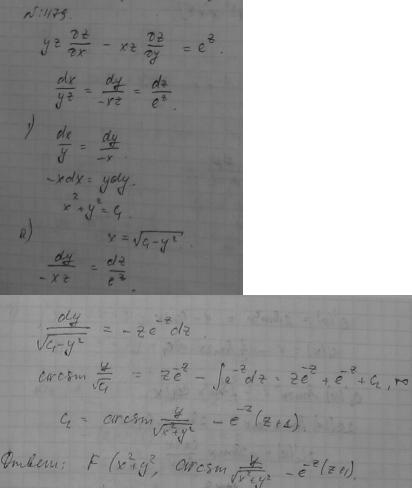 N:1179.
yz ∂z/∂x − xz ∂z/∂y = e^z.
dx/yz = dy/−xz = dz/e^z.
1) dx/y = dy/−x
−xdx = ydy.
x² + y² = C₁
2) x = √(C₁−y²)
dy/−xz = dz/e^z.
dy/√(C₁−y²) = −ze^−z dz
arcsin y/√C₁ = ze^−z − ∫e^−z dz = ze^−z + e^−z + C₂,
C₂ = arcsin y/√(x²+y²) − e^−z(z+1).
Ответ: F(x²+y², arcsin y/√(x²+y²) − e^−z(z+1)).